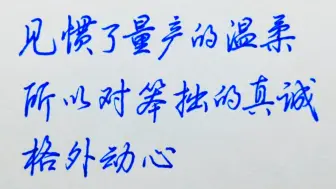 见惯了量产的温柔
所以对笨拙的真诚
格外动心